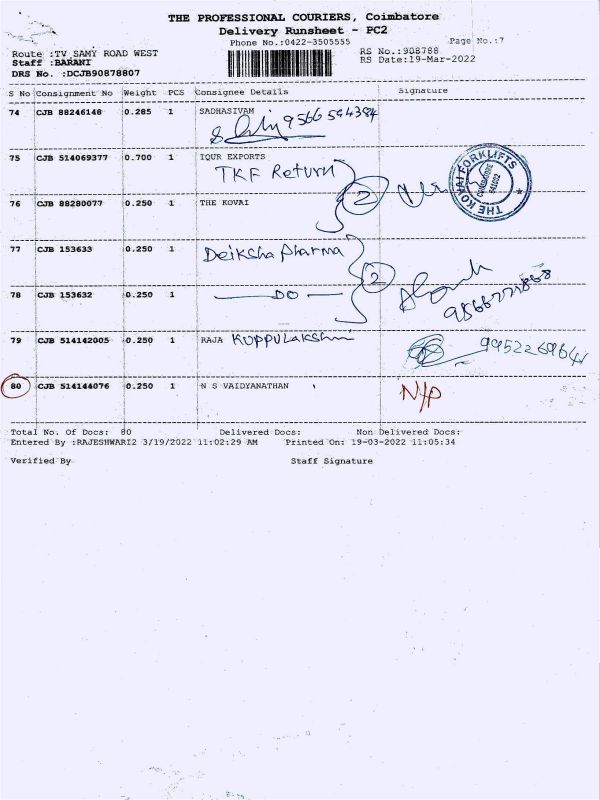 THE PROFESSIONAL COURIERS, Coimbatore
Delivery Runsheet - PC2
Phone No.:0422-3505555
Page No.:7
Route :TV SAMY ROAD WEST
RS No.:908788
Staff :BARANI
RS Date:19-Mar-2022
DRS No. :DCJB90878807
S No Consignment No Weight PCS Consignee Details Signature
74 CJB 88246148 0.285 1 SADHASIVAM
9566594384
75 CJB 514069377 0.700 1 IQUR EXPORTS
TKF Return
2
THE KOVAI FORKLIFTS
COIMBATORE
641002
76 CJB 88280077 0.250 1 THE KOVAI
77 CJB 153633 0.250 1 Deiksha pharma
2
78 CJB 153632 0.250 1 DO
79 CJB 514142005 0.250 1 RAJA Kuppulakshmi
80 CJB 514144076 0.250 1 N S VAIDYANATHAN N/P
Total No. Of Docs: 80 Delivered Docs: Non Delivered Docs:
Entered By :RAJESHWARI2 3/19/2022 11:02:29 AM Printed On: 19-03-2022 11:05:34
Verified By Staff Signature